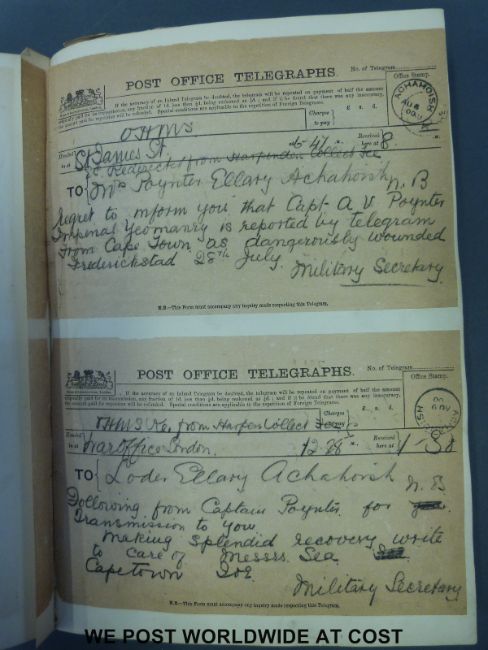 POST OFFICE TELEGRAPHS.
No. of Telegram
If the accuracy of an Inland Telegram be doubted, the telegram will be repeated on payment of half the amount
originally paid for its transmission, any fraction of 1d. less than ½d. being reckoned as ½d.; and if it be found that there was any inaccuracy,
the amount paid for repetition will be refunded. Special conditions are applicable to the repetition of Foreign Telegrams.
Office Stamp.
ACHAHOISH
AU 8
00
Charges to pay
£ s. d.
OHMS
Handed in at
St James St.
Received here at
8.
Redirected from Harpenden Collect
TO Mrs Poynter Ellary Achahoish N. B
Regret to inform you that Capt A V Poynter
Imperial Yeomanry is reported by telegram
from Cape Town as dangerously wounded
Frederickstad 28th July.
Military Secretary
N.B.—This Form must accompany any inquiry made respecting this Telegram.
POST OFFICE TELEGRAPHS.
No. of Telegram
If the accuracy of an Inland Telegram be doubted, the telegram will be repeated on payment of half the amount
originally paid for its transmission, any fraction of 1d. less than ½d. being reckoned as ½d.; and if it be found that there was any inaccuracy,
the amount paid for repetition will be refunded. Special conditions are applicable to the repetition of Foreign Telegrams.
Office Stamp.
Charges to pay
£ s. d.
OHMS from Harpen Collect
Handed in at
War Office London.
Received here at
TO Loder Ellary Achahoish N. B
Following from Captain Poynter for
Transmission to you
Making splendid recovery write
to care of Messrs. Sea
Capetown
Military Secretary
N.B.—This Form must accompany any inquiry made respecting this Telegram.
WE POST WORLDWIDE AT COST